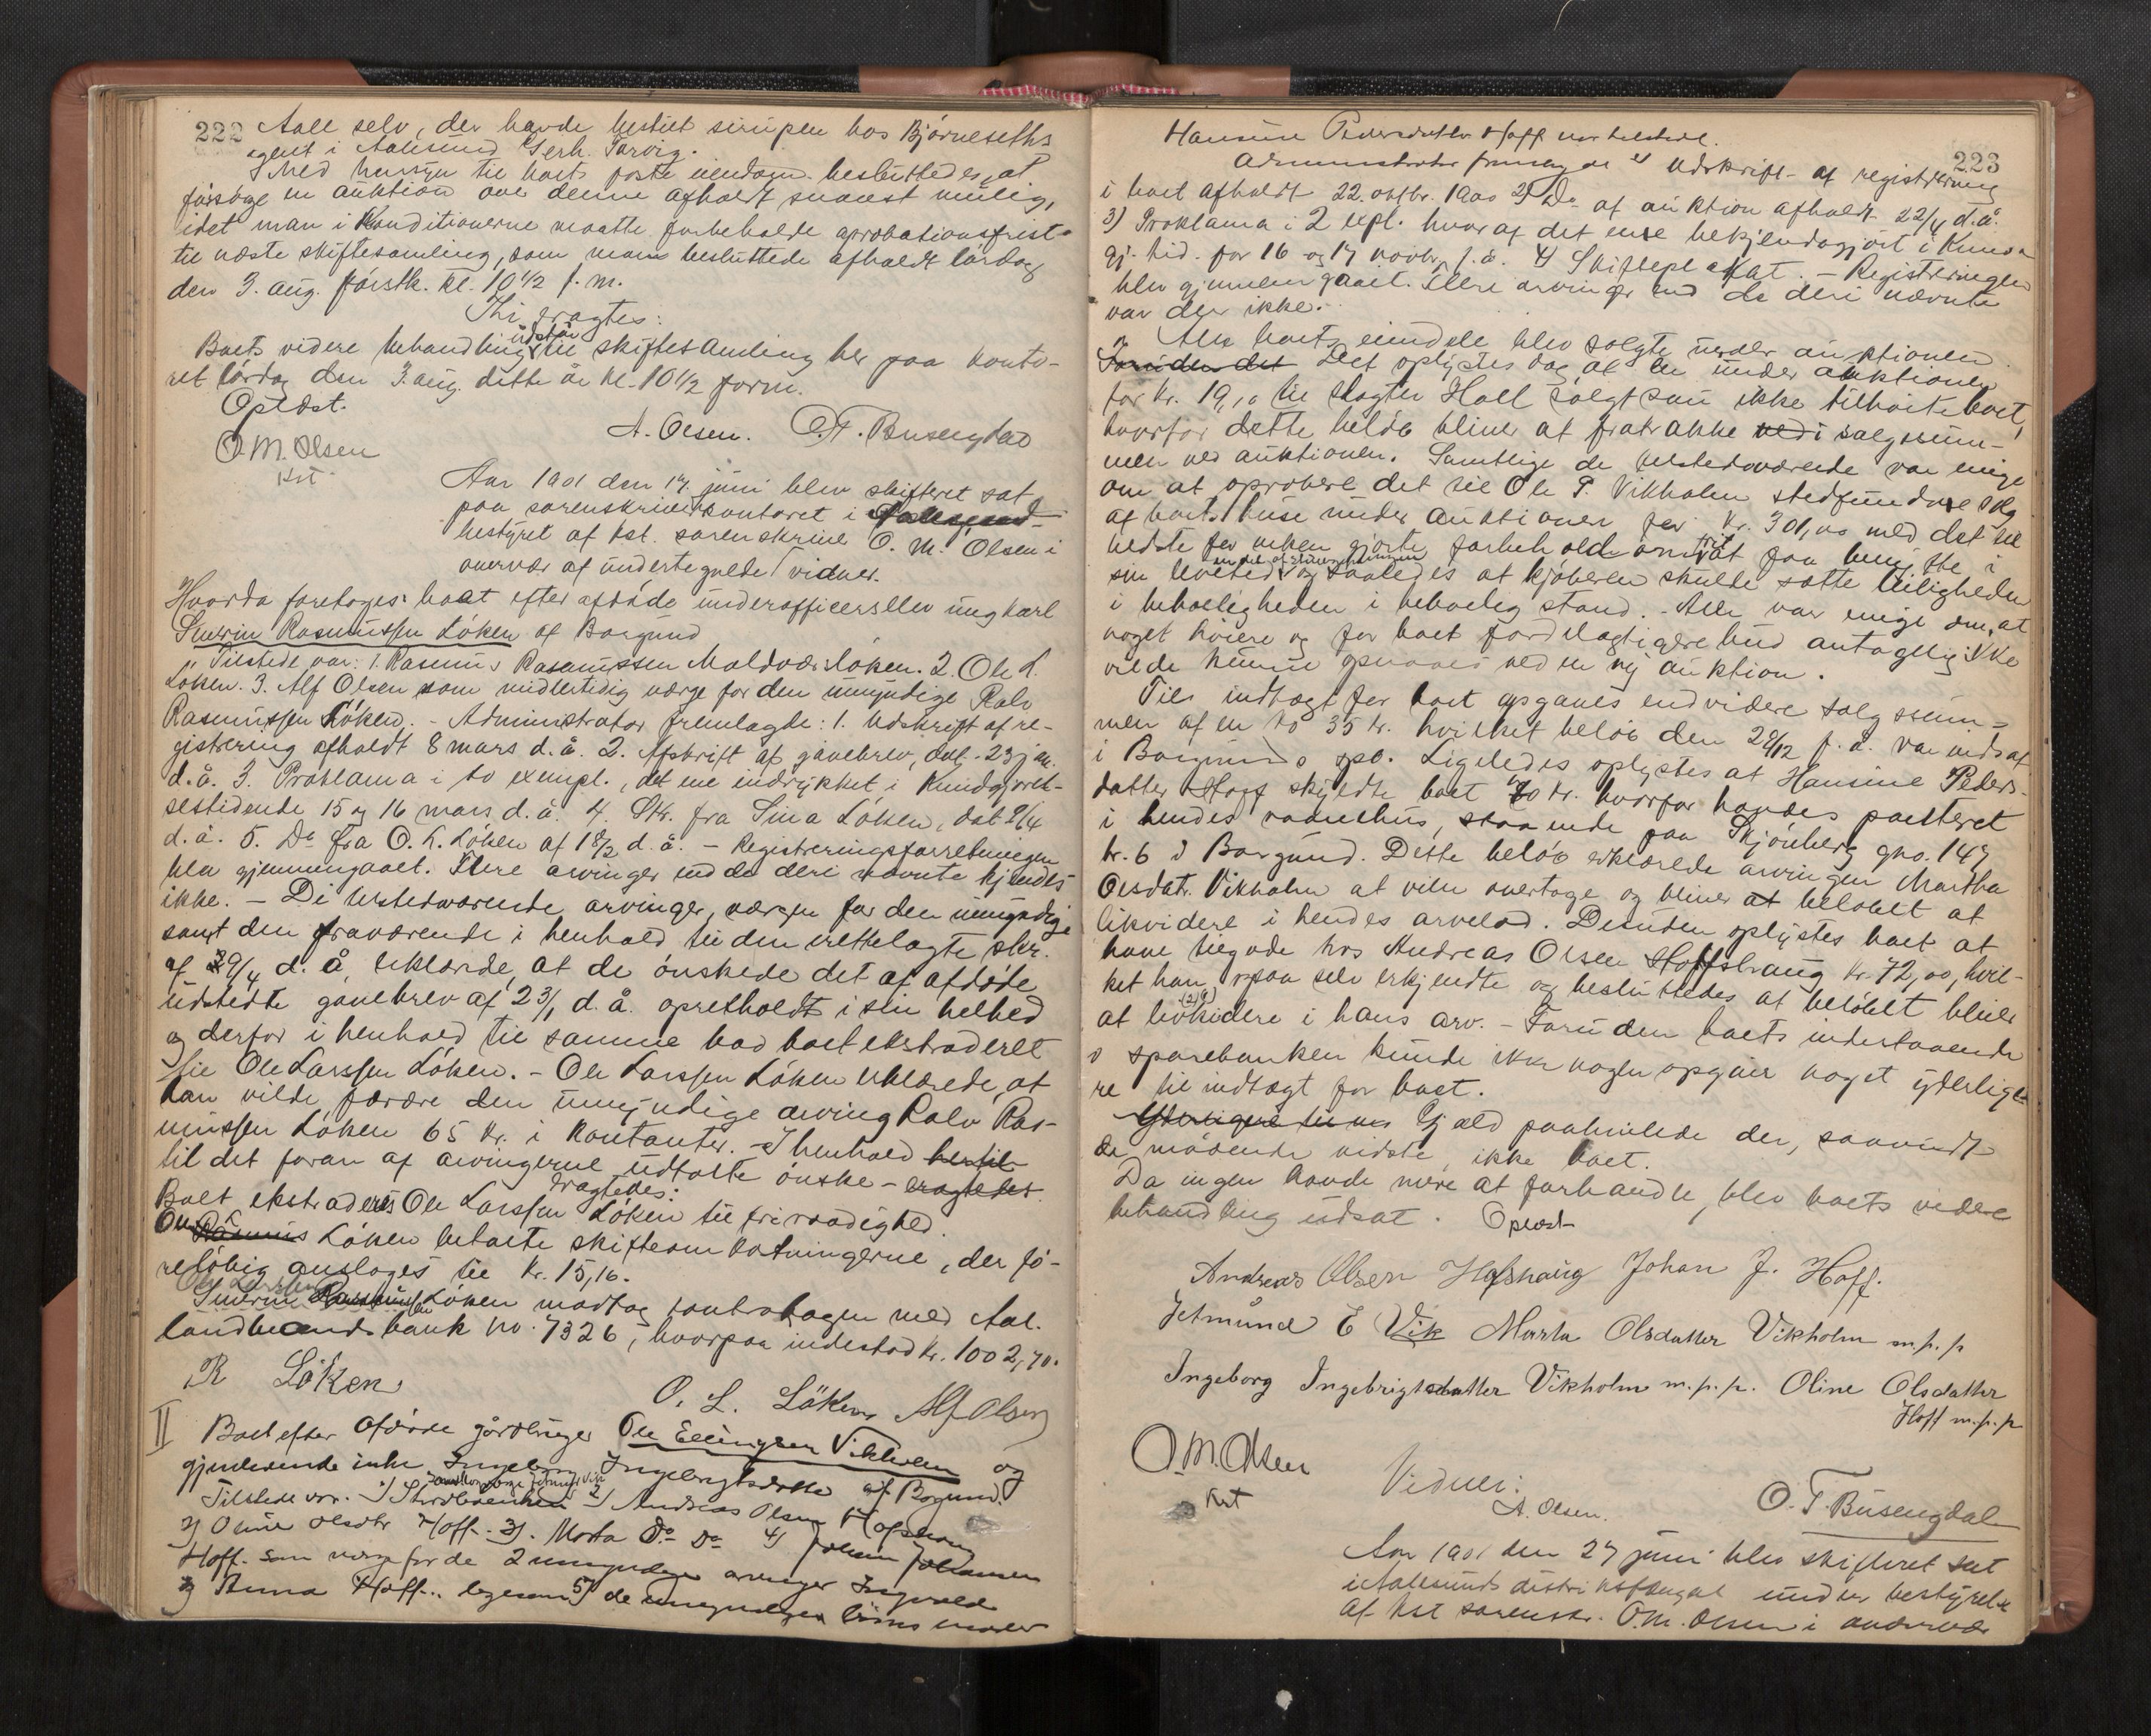 222
Aall selv, der havde bestilt sirupen hos Bjørneseths
agent i Aalesund Gerh. Tarvig.
Med hensyn til boets faste eiendom besluttedes, at
forsøge en auktion over denne afholdt snarest mulig,
idet man i Konditionerne maatte forbeholde aprobationsfrist
til næste skiftesamling, som man besluttede afholdt lørdag
den 3. aug. førstk. kl. 10½ f.m.
Thi eragtes:
Boets videre behandling udstår til skiftesamling her paa konto-
ret lørdag den 3. aug. dette år kl. 10½ form.
Oplæst.
O. M. Olsen
kst
A. Olsen. O. T. Busengdal
Aar 1901 den 17. juni blev skifteret sat
paa sorenskriverkontoret i Aalesund
bestyret af kst. sorenskriver O. M. Olsen i
overvær af undertegnede vidner.
Hvorda foretoges: boet efter afdøde underofficerselev ungkarl
Severin Rasmussen Løken af Borgund
Tilstede var: 1. Rasmus Rasmussen Moldværsløken. 2. Ole L.
Løken. 3. Alf Olsen som midlertidig værge for den umyndige Ralv
Rasmussen Løken. - Administrator fremlagte: 1. Udskrift af re-
gistrering afholdt 8 mars d.å. 2. Afskrift af gavebrev, dat. 23 jan.
d.å. 3. Proklama i to exempl., det ene indrykket i Kundgjørel-
sestidende 15 og 16 mars d.å. 4. Skr. fra Sina Løken, dat 29/4
d.å. 5. Do fra O. L. Løken af 18/2 d.å. - Registreringsforretningen
blev gjennemgaaet. Flere arvinger end de deri nævnte kjendes
ikke. - De tilstedeværende arvinger, værgen for den umyndige
samt den fraværende i henhold til den rettelagte skr.
af 29/4 d.å. erklærede, at de ønskede det af afdøde
udstedte gavebrev af 23/1 d.å. opretholdt i sin helhed
og derfor i henhold til samme bad boet ekstraderet
til Ole Larssen Løken. - Ole Larssen Løken erklærede, at
han vilde forære den umyndige arving Ralv Ras-
mussen Løken 65 kr. i kontanter. - I henhold hertil
til det foran af arvingerne udtalte ønske - eragtedes
eragtedes:
Boet ekstraderes Ole Larssen Løken til fri raadighed.
Ole Rasmus Løken betalte skifteomkostningerne, der fo-
reløbig ansloges til kr. 15,16.
Ole Larssen
Severin Rasmussen Løken modtog kontrabogen med Aal.
landmandsbank no. 7326, hvorpaa indestod kr. 1002,70.
R Løken
O. L. Løken Alf Olsen
II Boet efter Afdøde gårdbruger Ole Ellingsen Vikholm og
gjenlevende enke Ingeborg Ingebrigtsdatter af Borgund.
Tilstede var. 1) Stervboenken 2) Andreas Olsen Hofshaug
3) Oline Olsdtr Hoff. 3). Marta Do Do 4) Johan Johansen
Hoff. som værge for de 2 umyndige arvinger Ingvald
og Anna Hoff. ligesom 5) de umyndiges moder
223
Hansine Pedersdatter Hoff var tilstede.
Administrator fremlagde 1) Udskrift af registrering
i boet afholdt 22. oktbr. 1900 2) Do af auktion afholdt 22/4 d.å.
3) Proklama i 2 expl. hvoraf det ene bekjendtgjort i Kund-
gj. tid. for 16 og 17 novbr. f.å. 4) Skifteplakat. - Registreringen
blev gjennemgaaet. Flere arvinger end de deri nævnte
var der ikke.
Alle boets eiendele blev solgte under auktionen
Foruden det Det oplystes dog, at en under auktionen
for kr. 19,10 til slagter Hall solgt sau ikke tilhørte boet,
hvorfor dette beløb bliver at fratrække ved i salgssum-
men ved auktionen. Samtlige de tilstedeværende var enige
om at aprobere det til Ole P. Vikholm stedfundne salg
af boets huse under auktionen for kr. 301,00 med det til
bedste for enken gjorte forbehold om frit at faa benytte i
sin levetid en del af stuebygningen og saaledes at kjøberen skulde sætte leiligheden
i beboeligheden i beboelig stand. - Alle var enige om, at
noget høiere og for boet fordelagtigere bud antagelig ikke
vilde kunne opnaaes ved en ny auktion.
Til indtægt for boet opgaves endvidere salgssum-
men af en ko 35 kr. hvilket beløb den 28/12 f.å. var indsat
i Borgunds spb. Ligeledes oplystes at Hansine Peders-
datter Hoff skyldte boet 70 kr. hvorfor havdes panteret
i hendes vaanehus, staaende paa Skjønberg gno. 147
br. 6 i Borgund. Dette beløb erklærede arvingen Martha
Olsdatr. Vikholm at ville overtage og bliver at beløbet at
likvidere i hendes arvelod. Desuden oplystes boet at
have tilgode hos Andreas Olsen Hoffshaug kr. 72,00, hvil-
ket han ogsaa selv erkjendte og besluttedes at beløbet bliver
at likvidere i hans arv. - Foruden boets indestaaende
i sparebanken kunde ikke nogen opgive noget yderlige-
re til indtægt for boet.
Yderligere til us Gjæld paahvilede der, saavidt
de mødende vidste, ikke boet.
Da ingen havde mere at forhandle, blev boets videre
behandling udsat. Oplæst
Andreas Olsen Hofshaug Johan J. Hoff.
Jetmund E Vik Marta Olsdatter Vikholm m.p.p
Ingeborg Ingebrigtsdatter Vikholm m.p.p. Oline Olsdatter
Hoff m.p.p
O. M. Olsen
kst
Vidner:
A. Olsen.
O. T. Busengdal
Aar 1901 den 27 juni blev skifteret sat
i Aalesunds distriktsfængsel under bestyrelse
af kst sorenskr. O. M. Olsen i overvær